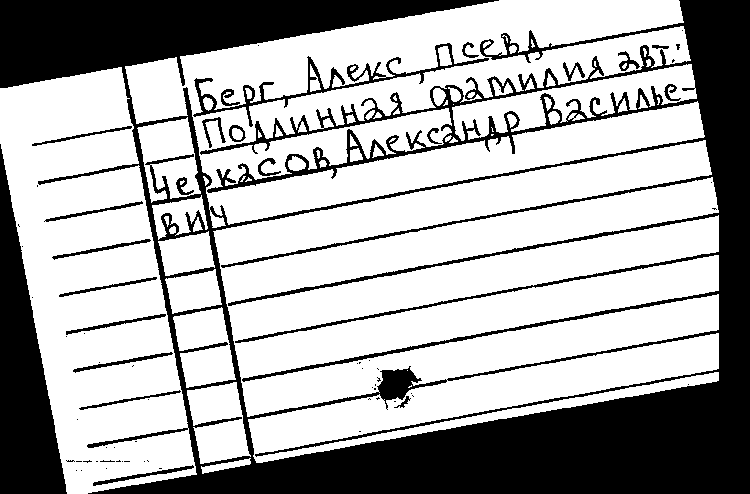 Берг, Алекс, псевд.
Подлинная фамилия авт.:
Черкасов, Александр Василье-
вич